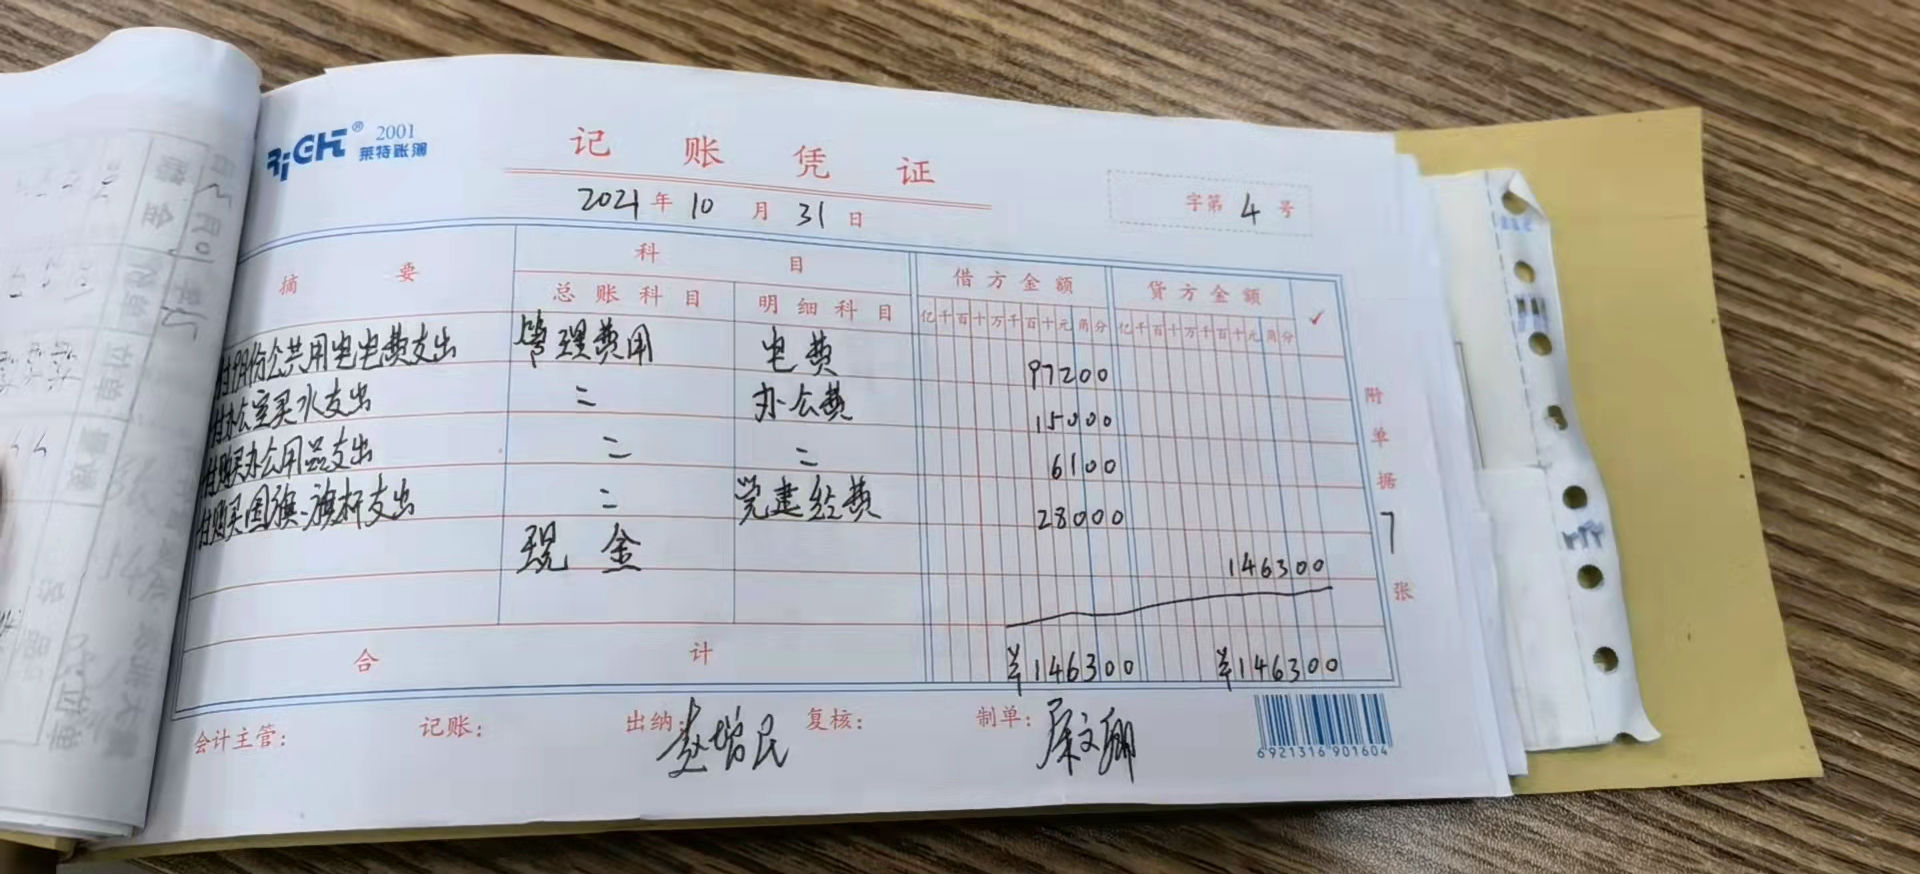 RiGHT® 2001
莱特账簿
记账凭证
2021年10月31日
字第4号
摘要
科目
总账科目
明细科目
借方金额
贷方金额
✓
亿千百十万千百十元角分
亿千百十万千百十元角分
付9月份公共用电电费支出 管理费用 电费 97200
付办公室买水支出 〃 办公费 15000
付购买办公用品支出 〃 〃 6100
付购买国旗、旗杆支出 〃 党建经费 28000
现金 146300
合计 ¥146300 ¥146300
附单据7张
会计主管:
记账:
出纳: 赵增民
复核:
制单:
6921316901604